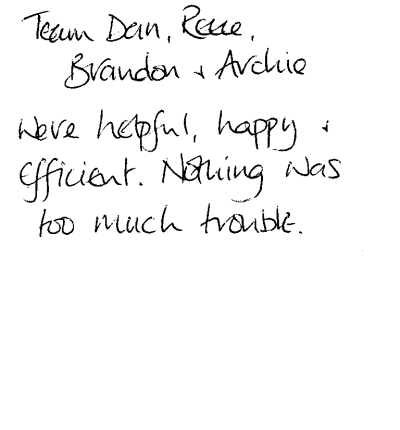 Team Dan, Reece,
Brandon + Archie
Were helpful, happy +
Efficient. Nothing was
too much trouble.